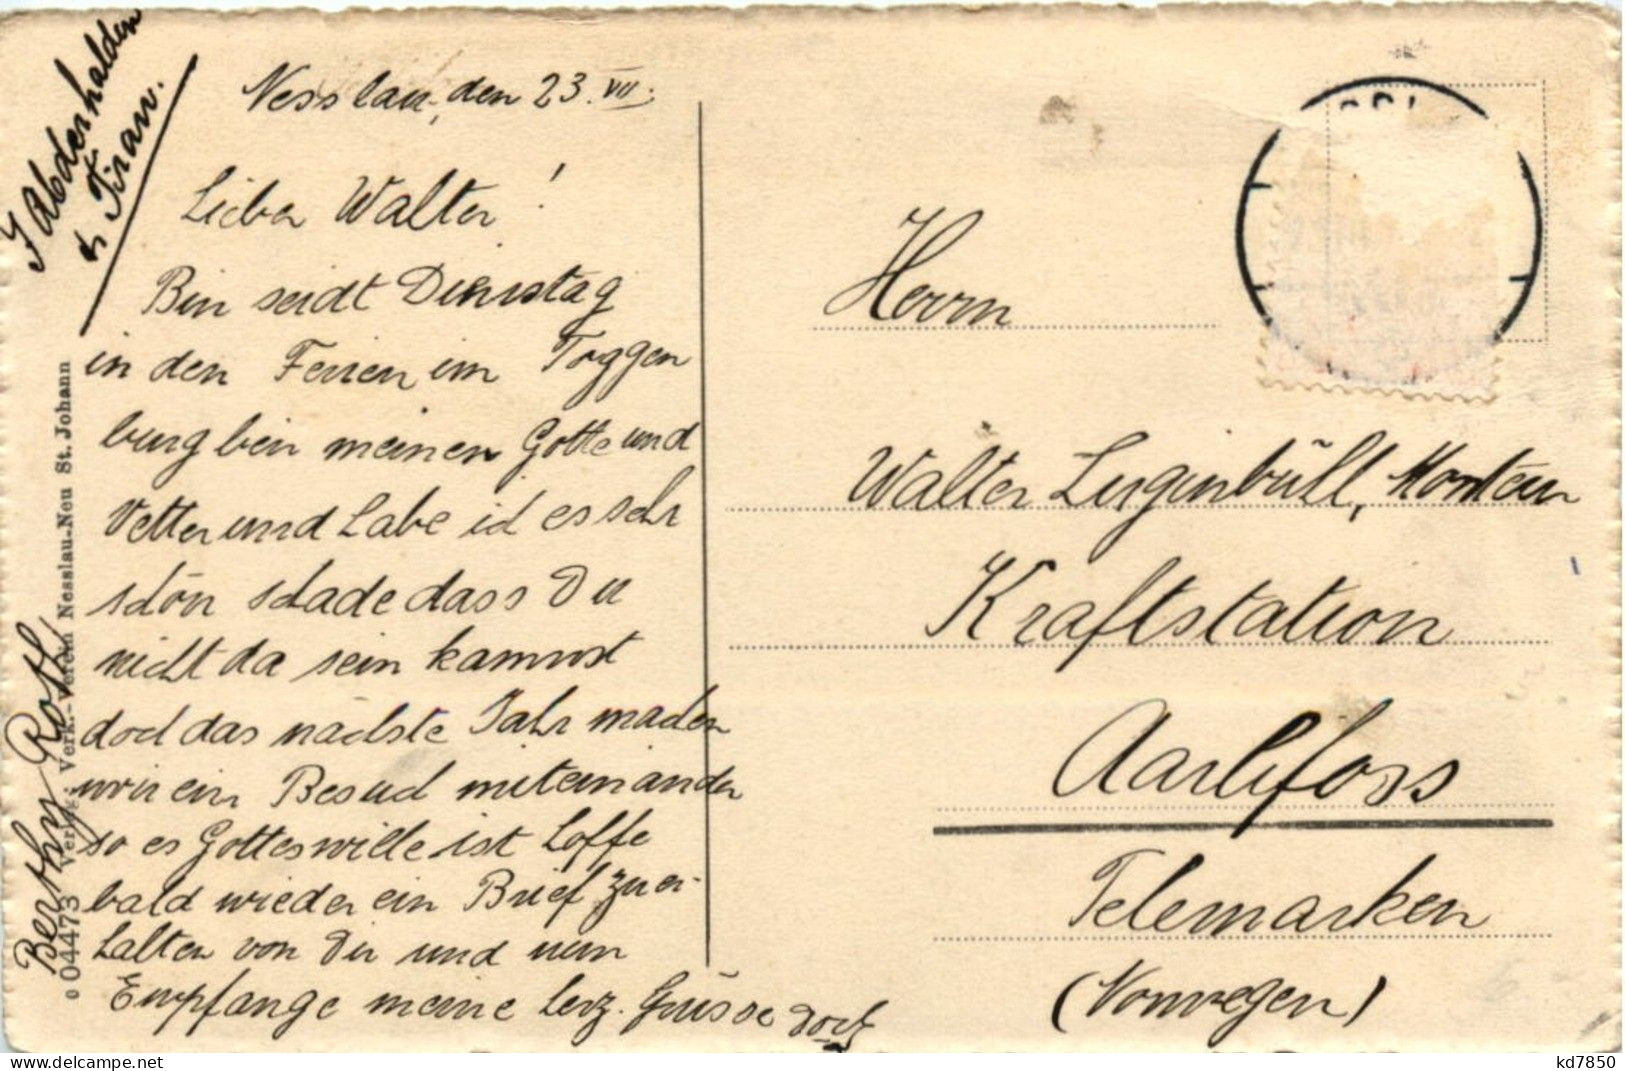 Nesslau, den 23. VII.
Lieber Walter!
Bin seidt Dienstag
in den Ferien im Toggen
burg bein meinen Gotte und
Vetter und habe ich es sehr
schön schade dass Du
nicht da sein kannst
doch das nächste Jahr machen
wir ein Besuch miteinander
so es Gotteswille ist hoffe
bald wieder ein Brief zu er-
halten von Dir und nun
Empfange meine herz. Grüsse
J Abderhalden
Berthy Roth
004473 Verk.-Verein Nesslau-Neu St. Johann
Herrn
Walter Luginbühl, Monteur
Kraftstation
Aarlifoss
Telemarken
(Norwegen)
kd7850